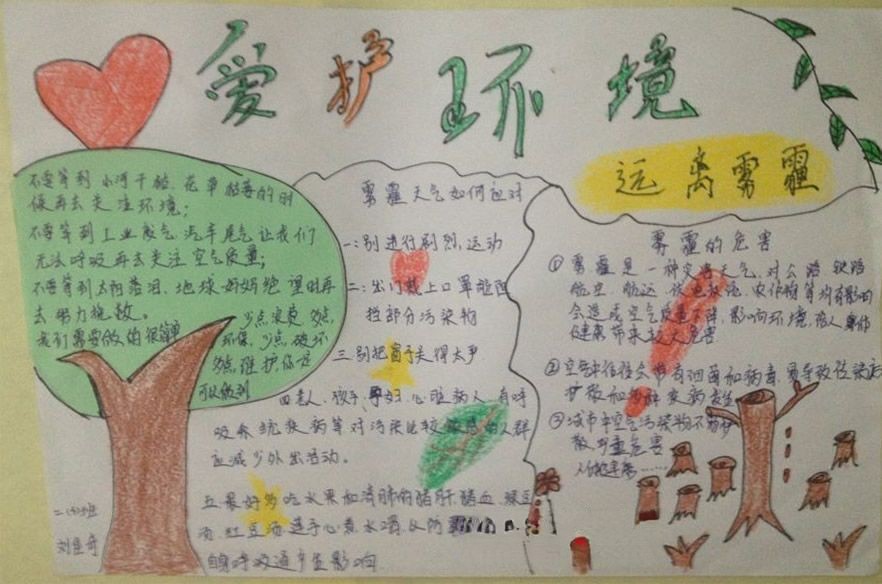 爱护环境
远离雾霾
不要等到小河干枯、花草枯萎的时
候再去关注环境;
不要等到工业废气、汽车尾气让我们
无法呼吸再去关注空气质量;
不要等到太阳落泪、地球奶奶绝望时再
去努力挽救。
我们需要做的很简单
少点浪费、多点
环保,少点破坏
多点维护,你一定
可以做到
二(5)班
刘
雾霾天气如何应对
一:别进行剧烈运动
二:出门戴上口罩能阻
挡部分污染物
三 别把窗子关得太严
四 老人、孩子、孕妇、心脏病人、有呼
吸系统疾病等对污染比较敏感的人群
应减少外出活动。
五 最好多吃水果和清肺的猪肝猪血、绿豆
汤、红豆汤莲子心煮水喝以防
自身呼吸道产生影响.
雾霾的危害
① 雾霾是一种灾害天气,对公路 铁路
航空、航运、供电系统、农作物等均有影响
会造成空气质量下降,影响环境,给人身体
健康带来较大危害
② 空气中往往会带有细菌和病毒,易导致传染病
扩散和
③ 城市中空气污染物不易扩
散